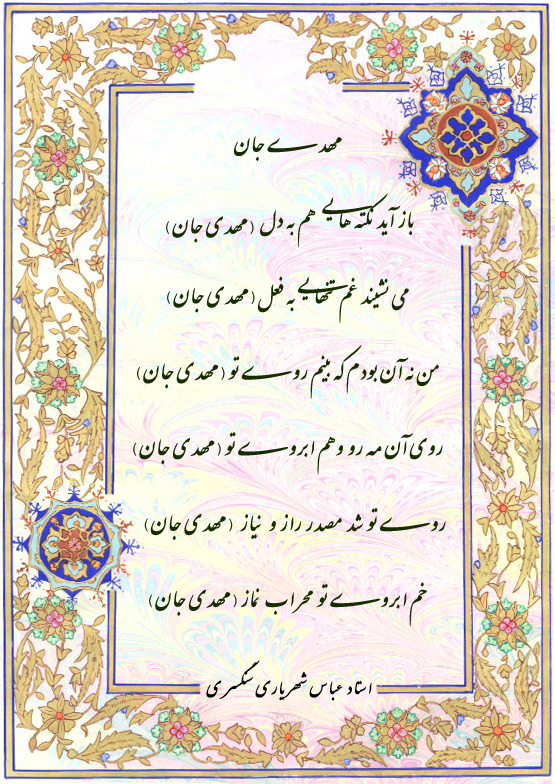 مهدی جان
باز آید نکته هایی هم به دل (مهدی جان)
می نشیند غم تنهایی به فعل (مهدی جان)
من نه آن بودم که بینم روی تو (مهدی جان)
روی آن مه رو و هم ابروی تو (مهدی جان)
روی تو شد مصدر راز و نیاز (مهدی جان)
خم ابروی تو محراب نماز (مهدی جان)
استاد عباس شهریاری سنگسری